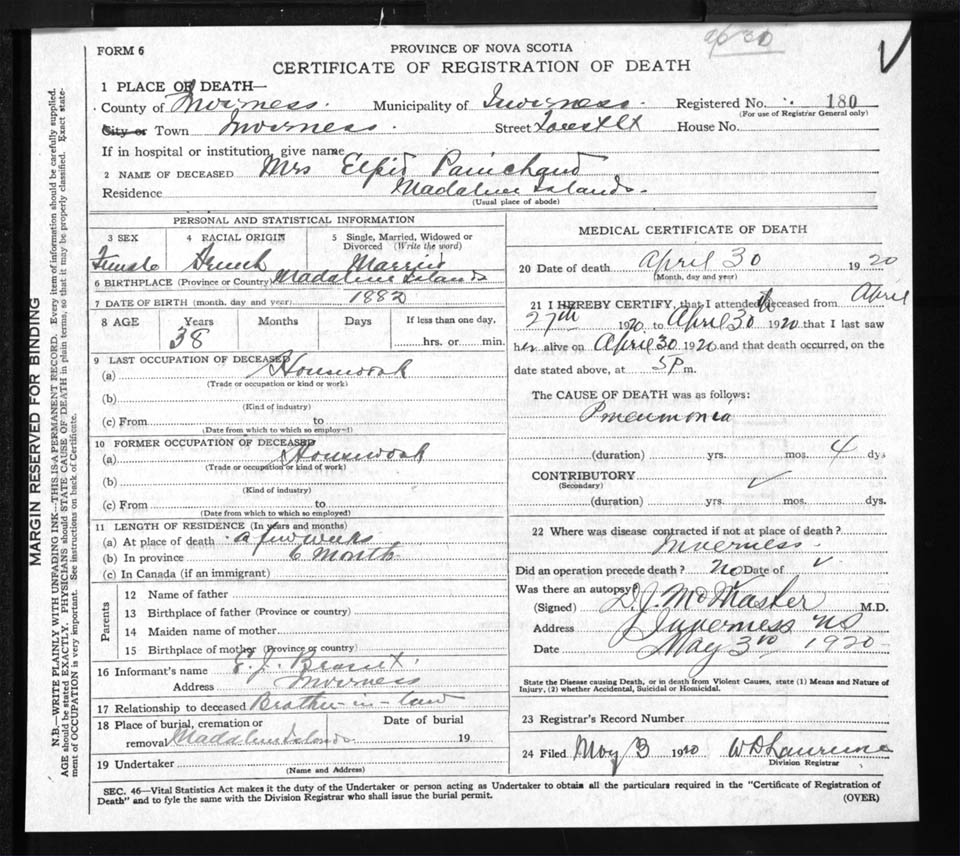 ap 30
FORM 6
PROVINCE OF NOVA SCOTIA
CERTIFICATE OF REGISTRATION OF DEATH
1 PLACE OF DEATH—
County of Inverness. Municipality of Inverness. Registered No. 180
(For use of Registrar General only)
City or Town Inverness. Street Forest St House No.
If in hospital or institution, give name
2 NAME OF DECEASED Mrs Elfid Painchaud
Residence Madaline Islands.
(Usual place of abode)
PERSONAL AND STATISTICAL INFORMATION
3 SEX 4 RACIAL ORIGIN 5 Single, Married, Widowed or Divorced (Write the word)
Female French Married
6 BIRTHPLACE (Province or Country) Madaline Islands
7 DATE OF BIRTH (month, day and year) 1882
8 AGE Years Months Days If less than one day,
38 hrs. or min.
9 LAST OCCUPATION OF DECEASED
(a) Housework
(Trade or occupation or kind or work)
(b)
(Kind of industry)
(c) From to
(Date from which to which so employed)
10 FORMER OCCUPATION OF DECEASED
(a) Housework
(Trade or occupation or kind of work)
(b)
(Kind of industry)
(c) From to
(Date from which to which so employed)
11 LENGTH OF RESIDENCE (In years and months)
(a) At place of death a few weeks
(b) In province 6 Month
(c) In Canada (if an immigrant)
Parents
12 Name of father
13 Birthplace of father (Province or country)
14 Maiden name of mother
15 Birthplace of mother (Province or country)
16 Informant's name E. J.
Address Inverness
17 Relationship to deceased Brother-in-law
18 Place of burial, cremation or Date of burial
removal Madaline Islands 19
19 Undertaker
(Name and Address)
MEDICAL CERTIFICATE OF DEATH
20 Date of death April 30 1920
(Month, day and year)
21 I HEREBY CERTIFY, that I attended deceased from April
27th 1920 to April 30 1920 that I last saw
her alive on April 30 1920 and that death occurred, on the
date stated above, at 5 P m.
The CAUSE OF DEATH was as follows:
Pneumonia
(duration) yrs. mos. 4 dys
CONTRIBUTORY
(Secondary)
(duration) yrs. mos. dys.
22 Where was disease contracted if not at place of death?
Inverness.
Did an operation precede death? No Date of
Was there an autopsy?
(Signed) D. J. McMaster M.D.
Address Inverness NS
Date May 3rd 1920
State the Disease causing Death, or in death from Violent Causes, state (1) Means and Nature of
Injury, (2) whether Accidental, Suicidal or Homicidal.
23 Registrar's Record Number
24 Filed May 3 1920 W D Lawrence
Division Registrar
SEC. 46—Vital Statistics Act makes it the duty of the Undertaker or person acting as Undertaker to obtain all the particulars required in the "Certificate of Registration of
Death" and to fyle the same with the Division Registrar who shall issue the burial permit.
(OVER)
MARGIN RESERVED FOR BINDING
N.B.—WRITE PLAINLY WITH UNFADING INK—THIS IS A PERMANENT RECORD. Every item of information should be carefully supplied.
AGE should be stated EXACTLY. PHYSICIANS should STATE CAUSE OF DEATH in plain terms, so that it may be properly classified. Exact state-
ment of OCCUPATION is very important. See instructions on back of Certificate.